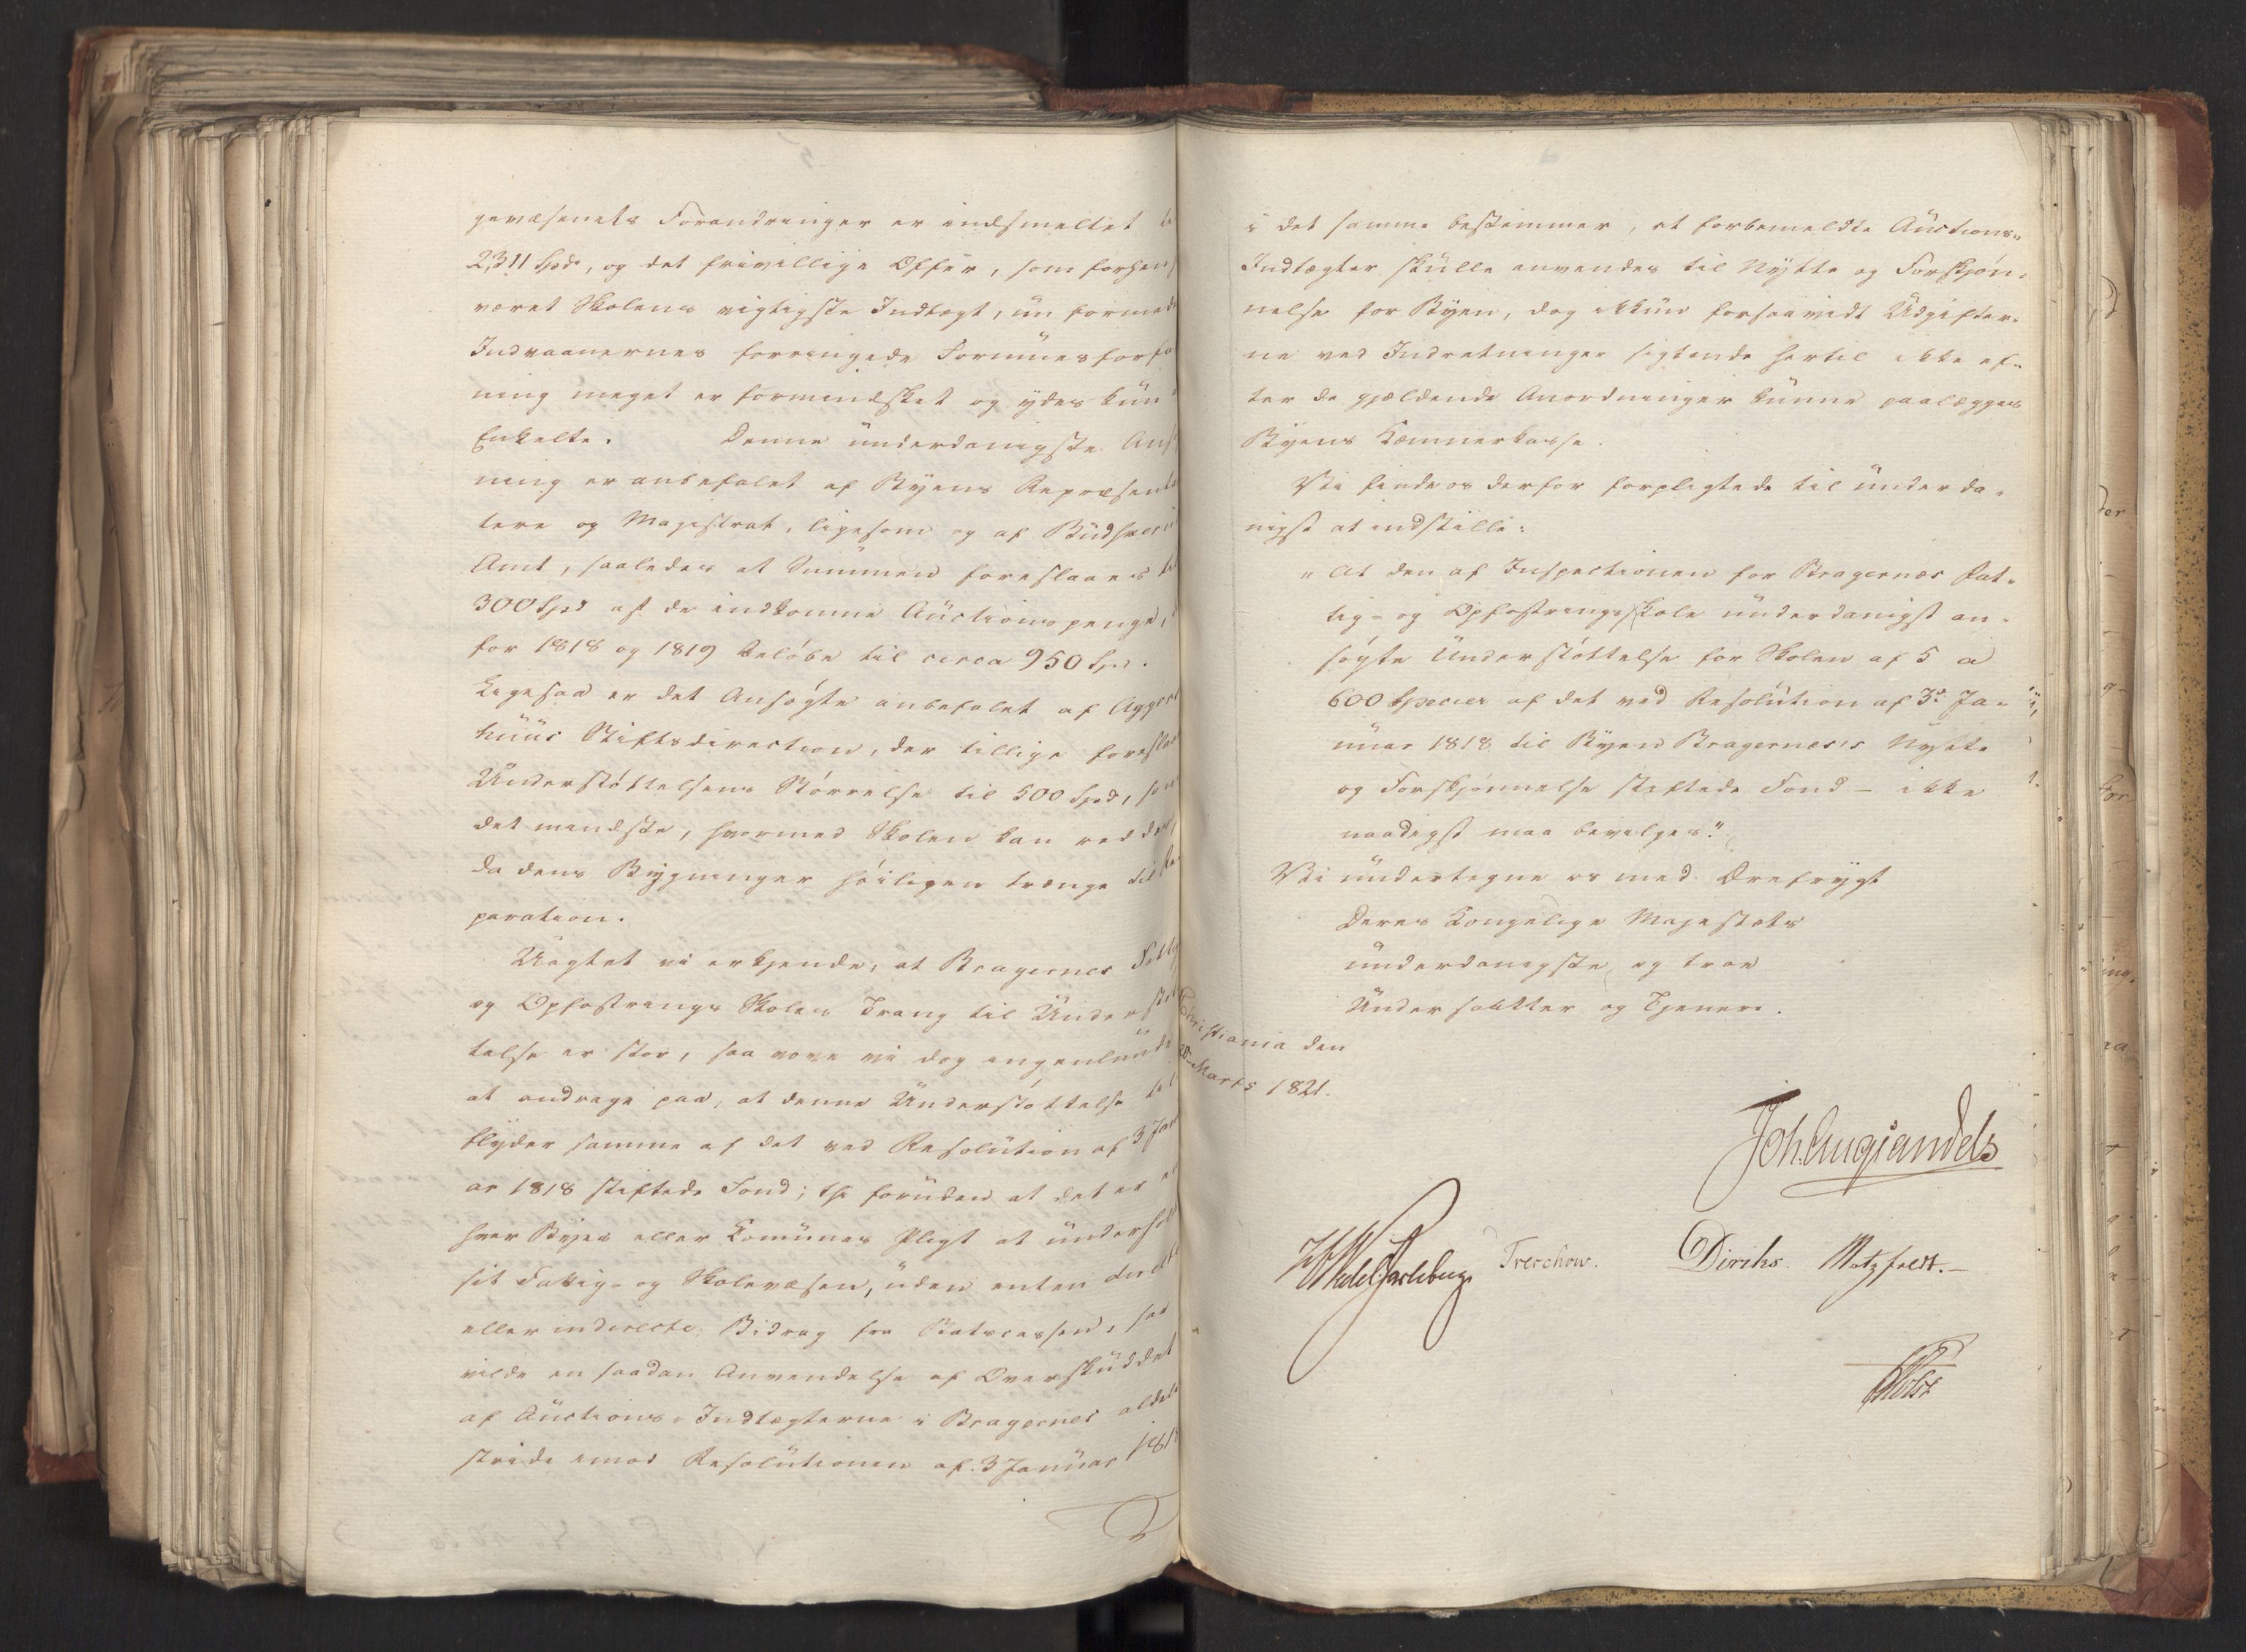 gevæsenets Forandringer er indsmeltet
2,311 Spd, og det frivillige Offer, som forhen
været Skolens vigtigste Indtægt, nu formed
Indvaanernes forringede Formuesforfa
ning meget er formindsket og ydes kun
Enkelte. Denne underdanigste Ans
ning er anbefalet af Byens Repræsenta
tere og Magistrat, ligesom og af Budskerud
Amt, saaledes at Summen foreslaaes til
300 Spd af de indkomne Auctionspenge,
for 1818 og 1819 beløbe til circa 950 Spd.
Ligesaa er det Ansøgte anbefalet af Agger
huus Stiftsdirection, der tillige foreslaa
Understøttelsens Størrelse til 500 Spd, som
det mindste, hvormed Skolen kan reddes,
da dens Bygninger høiligen trænge til Re
paration.
Uagtet vi erkjende, at Bragernes Fattig
og Opfostrings Skoles Trang til Understøt
telse er stor, saa vove vi dog ingenlunde
at andrage paa, at denne Understøttelse til
flyder samme af det ved Resolution af 3 Janu
ar 1818 stiftede Fond; thi foruden at det er en
hver Byes eller Comunes Pligt at underhol
sit Fattig- og Skolevæsen, uden enten direkte
eller indirecte Bidrag fra Statscassen, saa
vilde en saadan Anvendelse af Overskuddet
af Auctions-Indtægterne i Bragernes aldel
stride imod Resolutionen af 3 Januar 1818
i det samme bestemmer, at forbemeldte Auctions-
Indtægter skulle anvendes til Nytte og Forskjøn-
nelse for Byen, dog ikkun forsaavidt Udgifter-
ne ved Indretninger sigtende hertil ikke ef-
ter de gjældende Anordninger kunne paalægges
Byens Kæmnerkasse.
Vi finde os derfor forpligtede til underda-
nigst at indstille:
"At den af Inspectionen for Bragernæs Fat-
tig- og Opfostringsskole underdanigst an-
søgte Understøttelse for Skolen af 5 a
600 Species af det ved Resolution af 3de Ja-
nuar 1818 til Byen Bragernæs's Nytte
og Forskjønnelse stiftede Fond - ikke
naadigst maa bevilges."
Vi undertegne os med Ærefrygt
Deres Kongelige Majestæts
underdanigste og troe
Undersaatter og Tjenere.
Christiania den
Marts 1821.
Joh. Aug. Sandels
HWedel Jarlsberg Treschow. Diriks. Motzfeldt.-
Holst